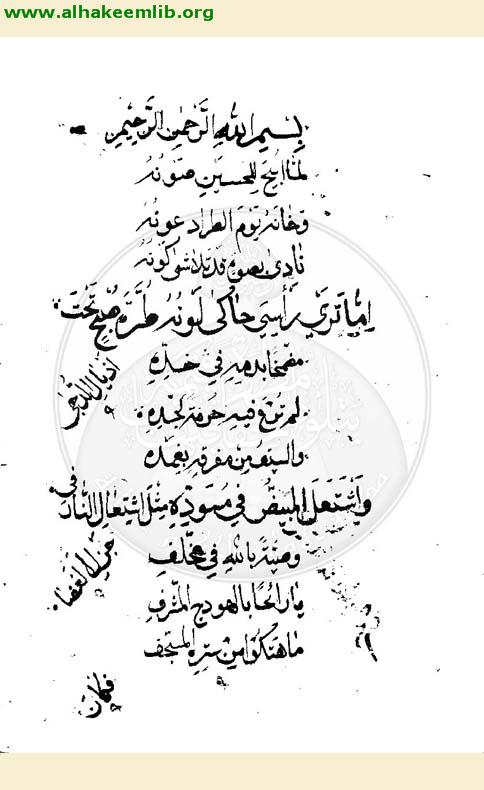 www.alhakeemlib.org
بِسْمِ اللهِ الرَّحْمٰنِ الرَّحِيْمِ
لما ابيح للحسين صونه
وخانه يوم الطراد عونه
نادى بصوت قد تلاشى كونه
اما تري رأسي حاكى لونه طرة صبح تحت
اذيال الدجى
بدمه في خده
لم ترع فيه حرمة لجده
والسيف من مفرقه بغمده
واشتعل المبيض في مسوده مثل اشتعال النار في
جزل الغضا
بالله في مخلف
بالهودج
ما هتكوا من ستره المسجف
فكان